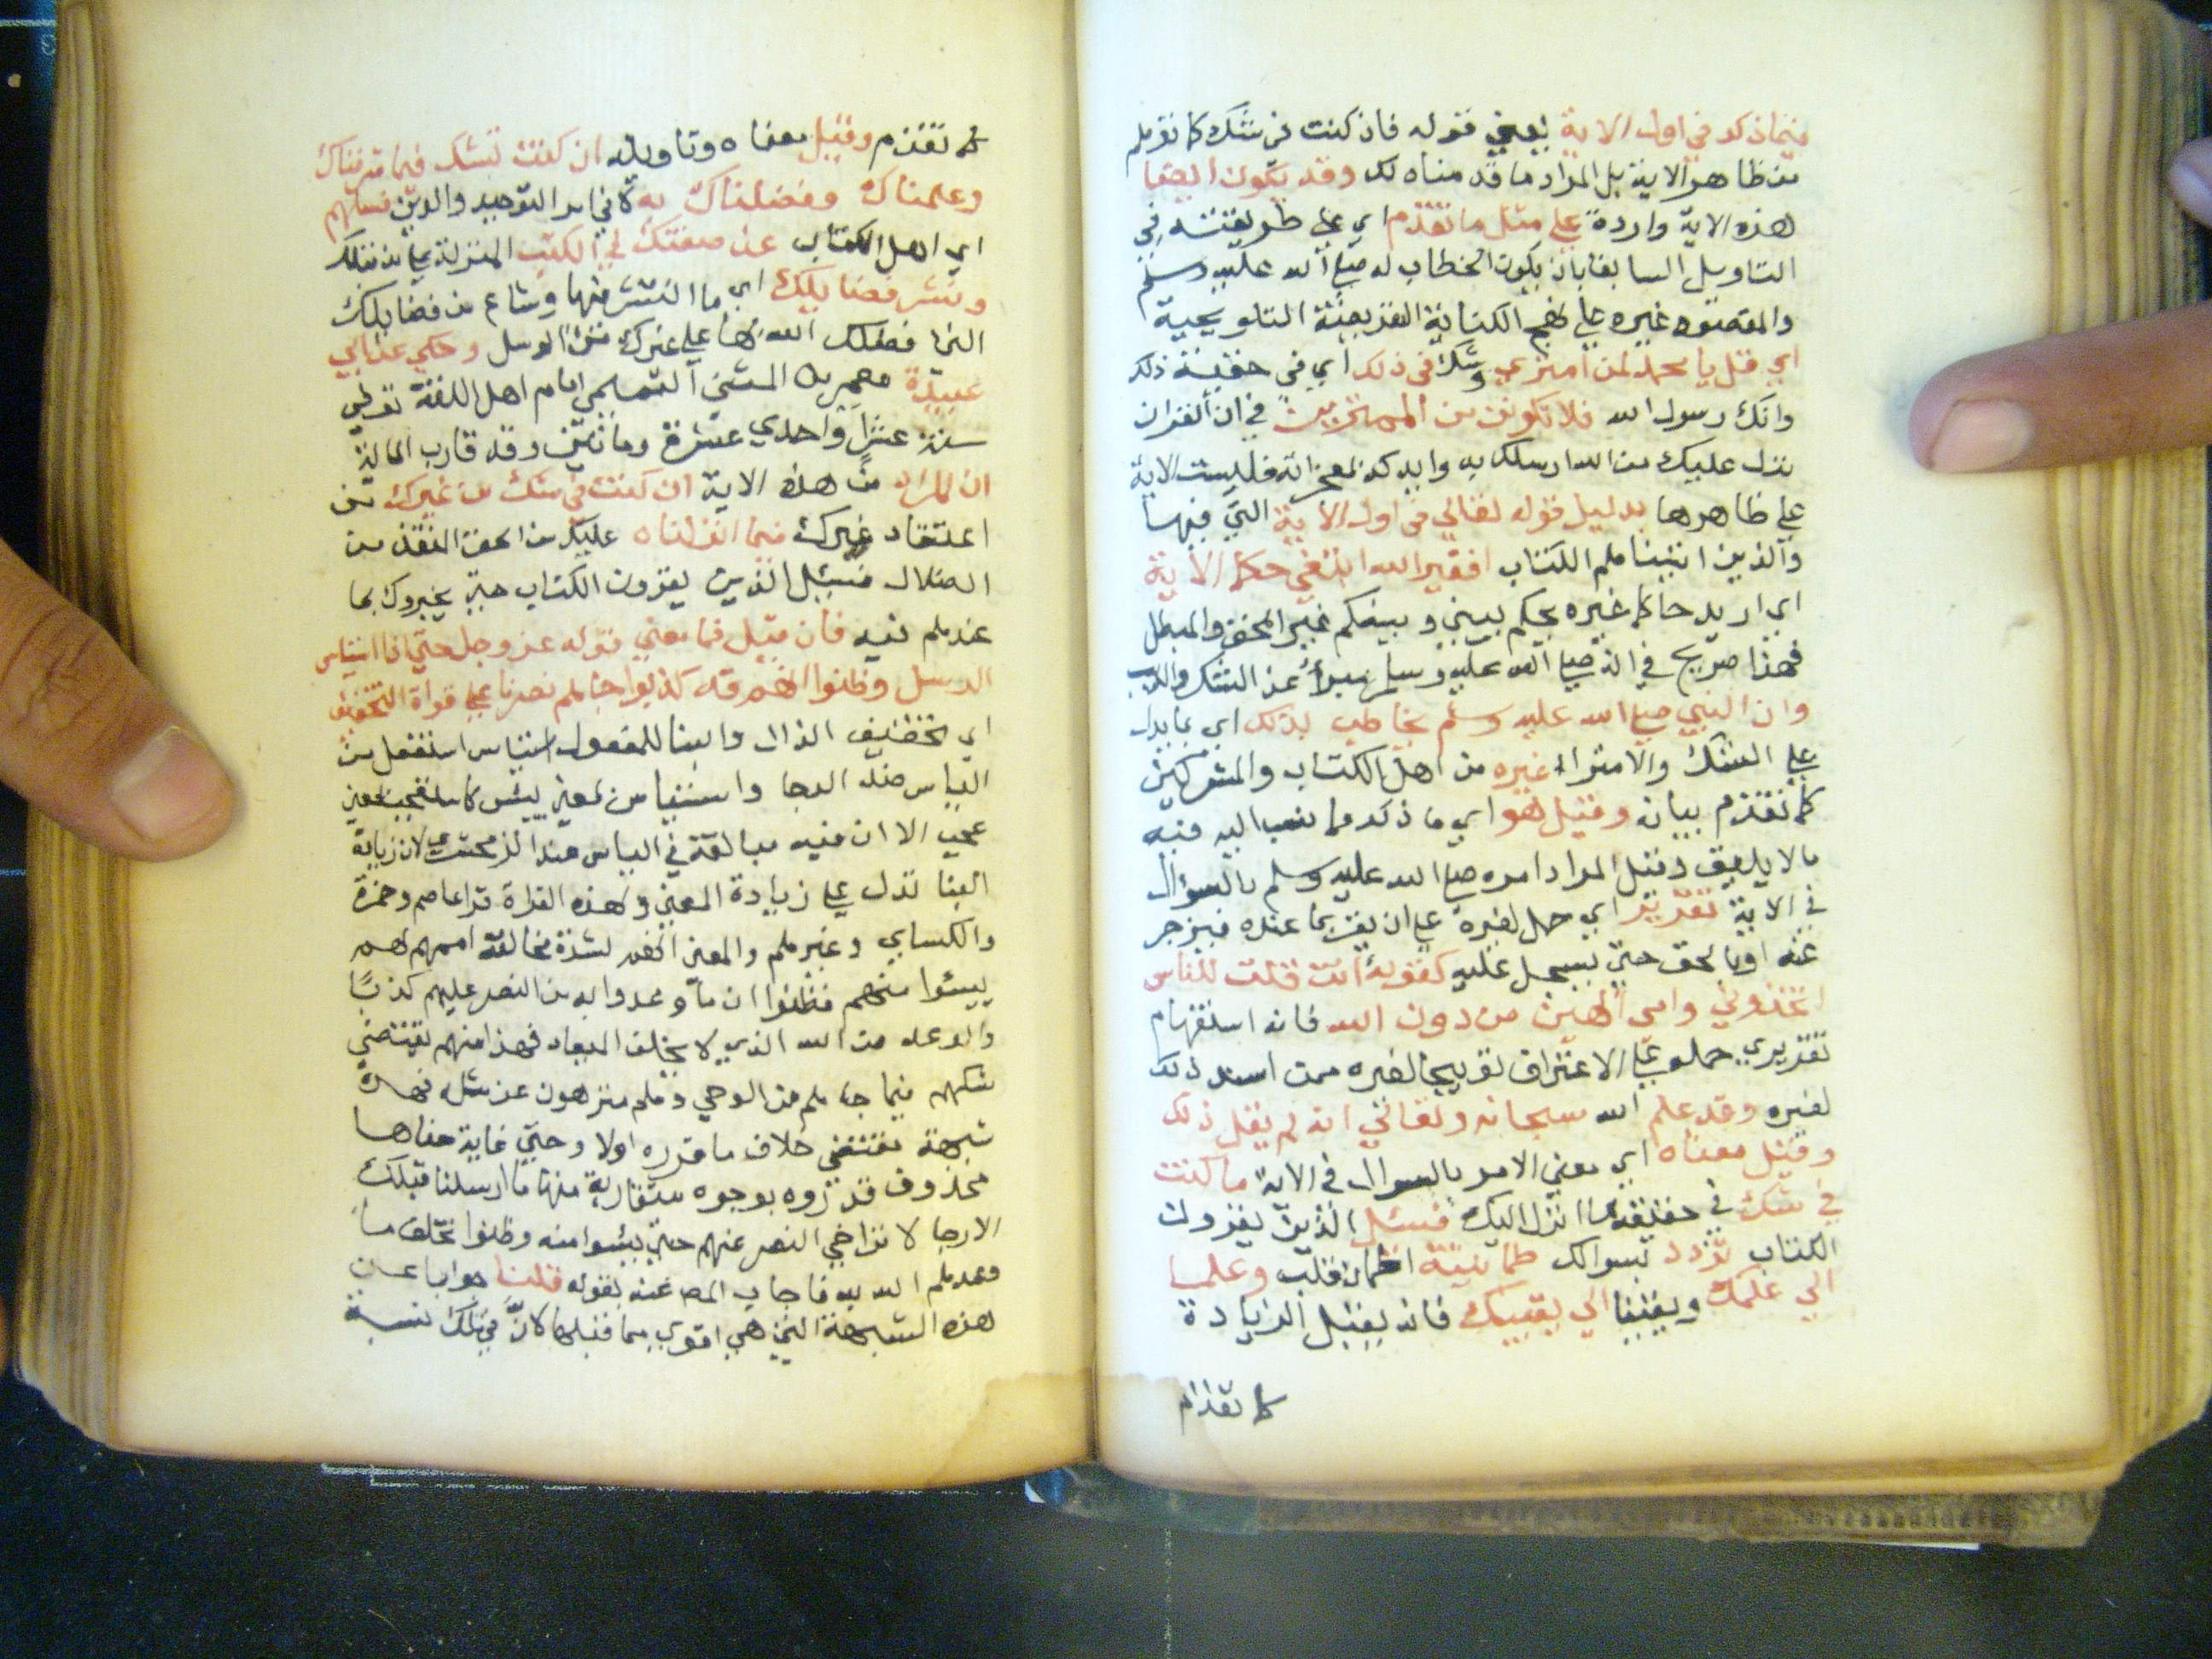 فيما ذكر في اول الاية يعني قوله فان كنت في شك كما توهم
من ظاهر الاية بل المراد ما قدمناه لك وقد يكون ايضا
هذه الاية واردة على مثل ما تقدم اي على طريقته في
التاويل السابق بان يكون الخطاب له صلى الله عليه وسلم
والمقصود غيره على نهج الكناية التعريضية التلويحية
اي قل يا محمد لمن امتري وشك في ذلك اي في حقيقة ذلك
وانك رسول الله فلا تكونن من الممترين في ان القران
نزل عليك من الله ارسلك به وايدك بمعجزاته فليست الاية
على ظاهرها بدليل قوله تعالي في اول الاية التي فيها
والذين اتيناهم الكتاب افغير الله ابتغي حكما الاية
اي اريد حاكما غيره يحكم بيني وبينكم غير المحق والمبطل
فهذا صريح في انه صلى الله عليه وسلم مبرأ عن الشك والريب
وان النبي صلى الله عليه وسلم يخاطب بذلك اي بما يدل
على الشك والامتراء غيره من اهل الكتاب والمشركين
كما تقدم بيانه وقيل هو اي ما ذكر مما نسب اليه فيه
ما لا يليق وقيل المراد امره صلى الله عليه وسلم بالسؤال
في الاية تقرير اي حمل لغيره على ان يقر بما عنده فيزجر
عنه او بالحق حتى يسجل عليه كقوله أانت قلت للناس
اتخذوني وامي الهين من دون الله فانه استفهام
تقريري حملوه على الاعتراف توبيخا لغيره ممن اسند ذلك
لغيره وقد علم الله سبحانه وتعالي انه لم يقل ذلك
وقيل معناه اي معني الامر بالسوال في الاية ما كنت
في شك في حقيقة ما انزل اليك فسئل الذين يقرون
الكتاب تزدد بسوالك طمانينة اطمان قلب وعلما
الي علمك ويقينا الي يقينك فانه يقبل الزيادة
كما تقدم
كما تقدم وقيل معناه وتاويله ان كنت تشك فيما شرفناك
وعلمناك وفضلناك به كاني امر التوحيد والدين فسلهم
اي اهل الكتاب عن صفتك في الكتب المنزلة على من قبلك
ونشر فضايلك اي ما انتشر منها وشاع من فضايلك
التي فضلك الله بها على غيرك من الرسل وحكي عن ابي
عبيدة معمر بن المثني التميمي امام اهل اللغة توفي
سنة عشر او احدي عشرة ومائتين وقد قارب الماية
ان المراد من هذه الاية ان كنت في شك من غيرك من
اعتقاد غيرك فيما انزلناه عليك من الحق المنقذ من
الضلال فسئل الذين يقرون الكتاب حتى يخبروك بما
عندهم فيه فان قيل فما معني قوله عز وجل حتى اذا استياس
الرسل وظنوا انهم قد كذبوا جاءهم نصرنا على قراة التخفيف
اي تخفيف الذال والبنا للمفعول استياس استفعل من
الياس ضد الرجا واستياس بمعني يئس كاستعجب بمعني
عجب الا ان فيه مبالغة في الياس عند الزمخشري لان زيادة
البنا تدل على زيادة المعني وهذه القراة قرا عاصم وحمزة
والكسايي وغيرهم والمعني انهم لشدة مخالفة اممهم لهم
ييئسوا منهم فظنوا ان ما وعدوا به من النصر عليهم كذبا
والوعد من الله الذي لا يخلف الميعاد فهذا منهم يقتضي
شكهم فيما جاءهم من الوحي وهم منزهون عن مثله فهذه
شبهة تقتضي خلاف ما قرره اولا وحتى غاية معناها
محذوف قدروه بوجوه متقاربة منها ما ارسلنا قبلك
الا رجالا تراخي النصر عنهم حتى ييئسوا منه وظنوا تخلف ما
وعدهم الله به فاجاب المص عنه بقوله قلنا جوابا عن
هذه الشبهة التي هي اقوي مما قبلها لان في تلك نسبة